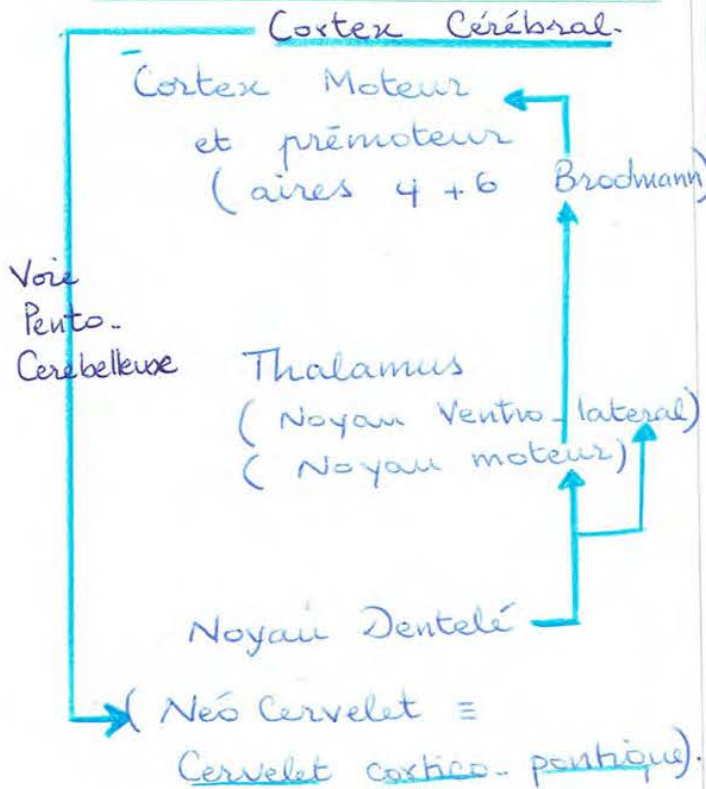 Cortex Cérébral.
Cortex Moteur
et prémoteur
(aires 4 + 6 Brodmann)
Voie
Pento-
Cerébelleuse
Thalamus
( Noyau Ventro-lateral)
( Noyau moteur)
Noyau Dentelé
( Neó Cervelet ≡
Cervelet cortico-pontique).